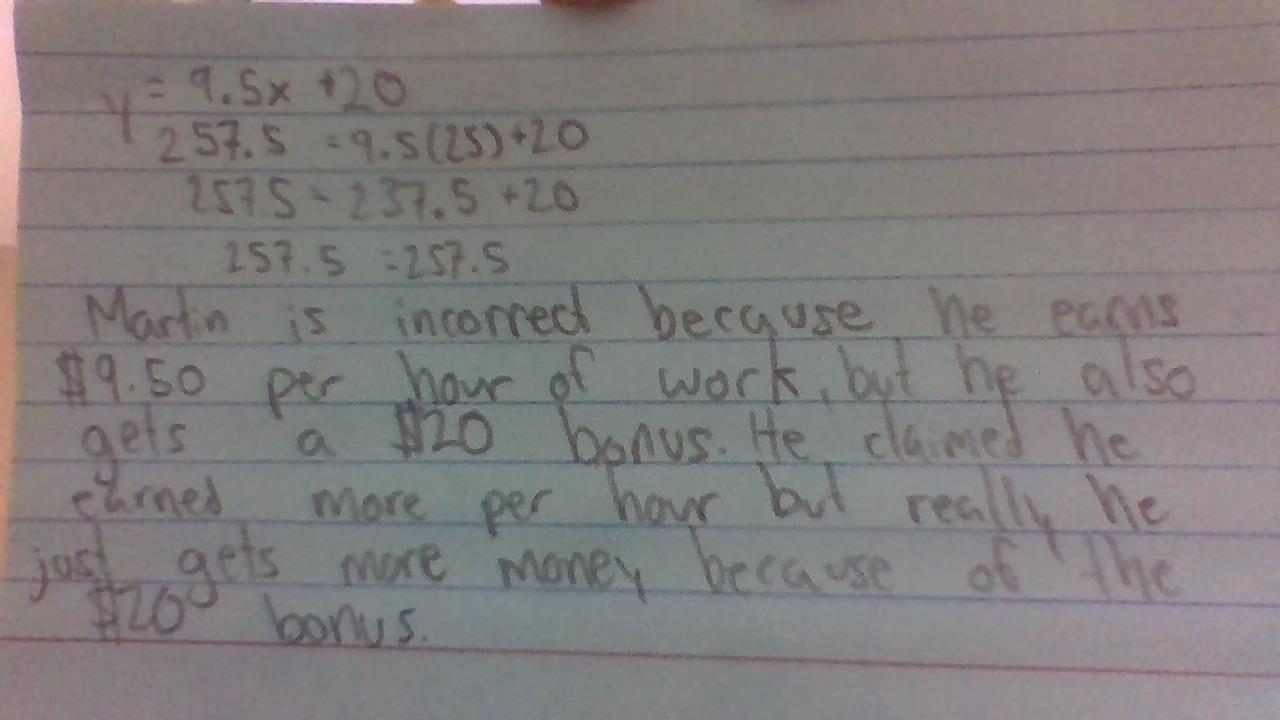 y = 9.5x +20
257.5 = 9.5(25)+20
257.5 = 237.5 +20
257.5 = 257.5
Martin is incorrect because he earns
$9.50 per hour of work, but he also
gets a $20 bonus. He claimed he
earned more per hour but really he
just gets more money because of the
$20 bonus.